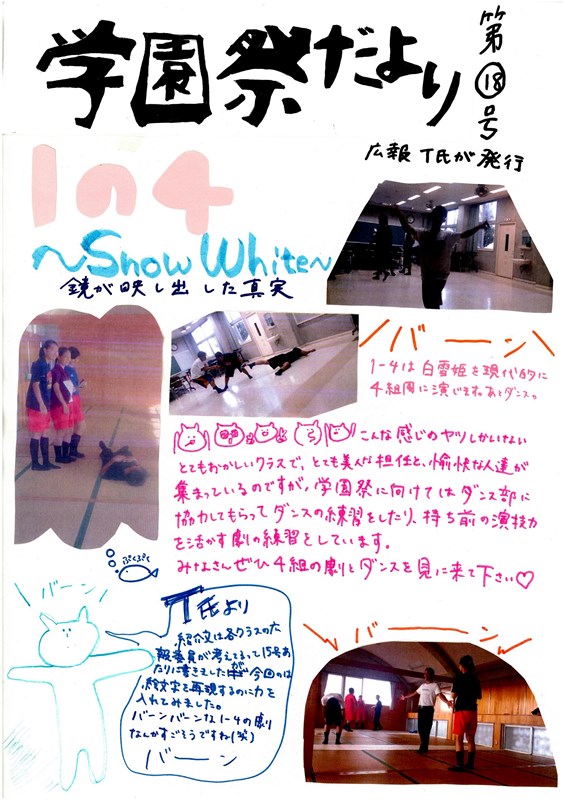 学園祭だより
第⑱号
広報 T氏が発行
1の4
～Snow White～
鏡が映し出した真実
バーン
1-4は白雪姫を現代的に
4組風に演じますあとダンス。
こんな感じのヤツしかいない
とてもおかしいクラスで、とても美人な担任と、愉快な人達が
集まっているのですが、学園祭に向けてはダンス部に
協力してもらってダンスの練習をしたり、持ち前の演技力
を活かす劇の練習をしています。
みなさんぜひ4組の劇とダンスを見に来て下さい♡
ぷくぷく
バーン
T氏より
紹介文は各クラスの広
報委員が考えてるって15号あ
たりに書きましたが今回のは
絵文字を再現するのに力を
入れてみました。
バーンバーンな1-4の劇
なんかすごそうですね(笑)
バーン
バーン